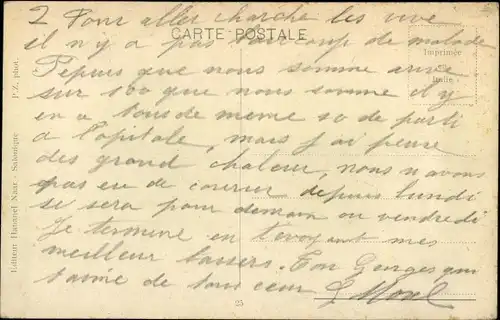 2 Pour aller charche les vive
CARTE POSTALE
il n y a pas beaucoup de malade
Imprimée
en
Italie
Depuis que nous somme arive
sur 100 que nous somme il y
en a tous de meme 50 de parti
a l'opitale, mais j ai peure
des grand chaleur, nous n avons
pas eu de courier depuis lundi
si sera pour demain ou vendredi
Je termine en t'evoyant mes
meilleur baisers. Ton Georges qui
t'aime de tous coeur G Morel
25
Editeur Hananel Naar - Salonique
P. Z. phot.